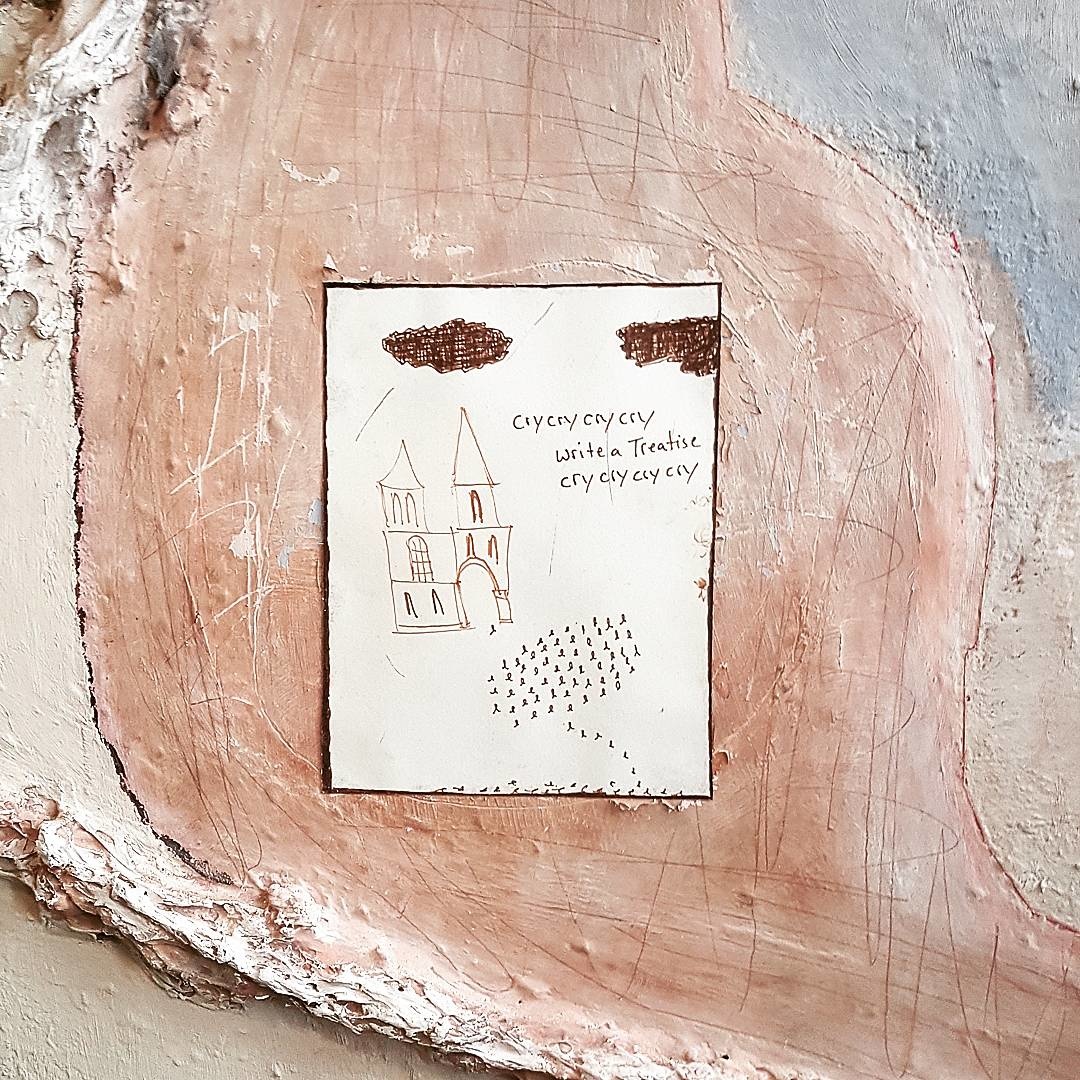 cry cry cry cry
write a Treatise
cry cry cry cry